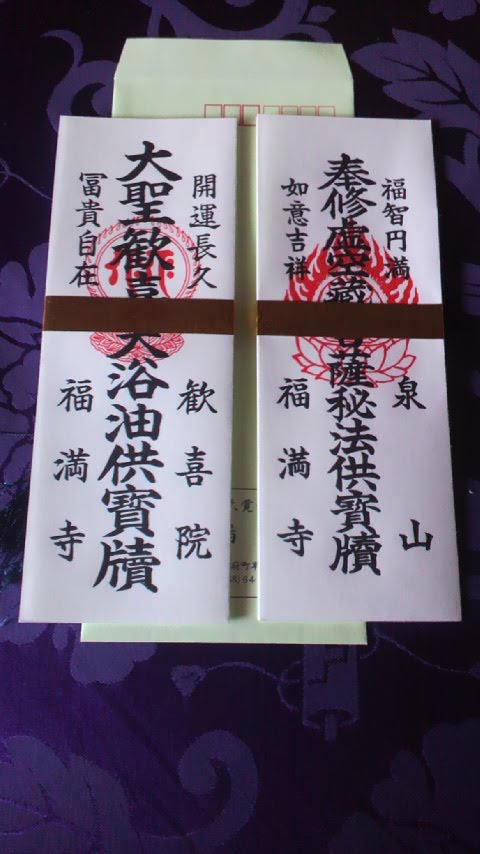 福智円満
泉山
奉修虚空藏菩薩秘法供寶牘
如意吉祥
福満寺
開運長久
歓喜院
大聖歡喜天浴油供寶牘
冨貴自在
福満寺